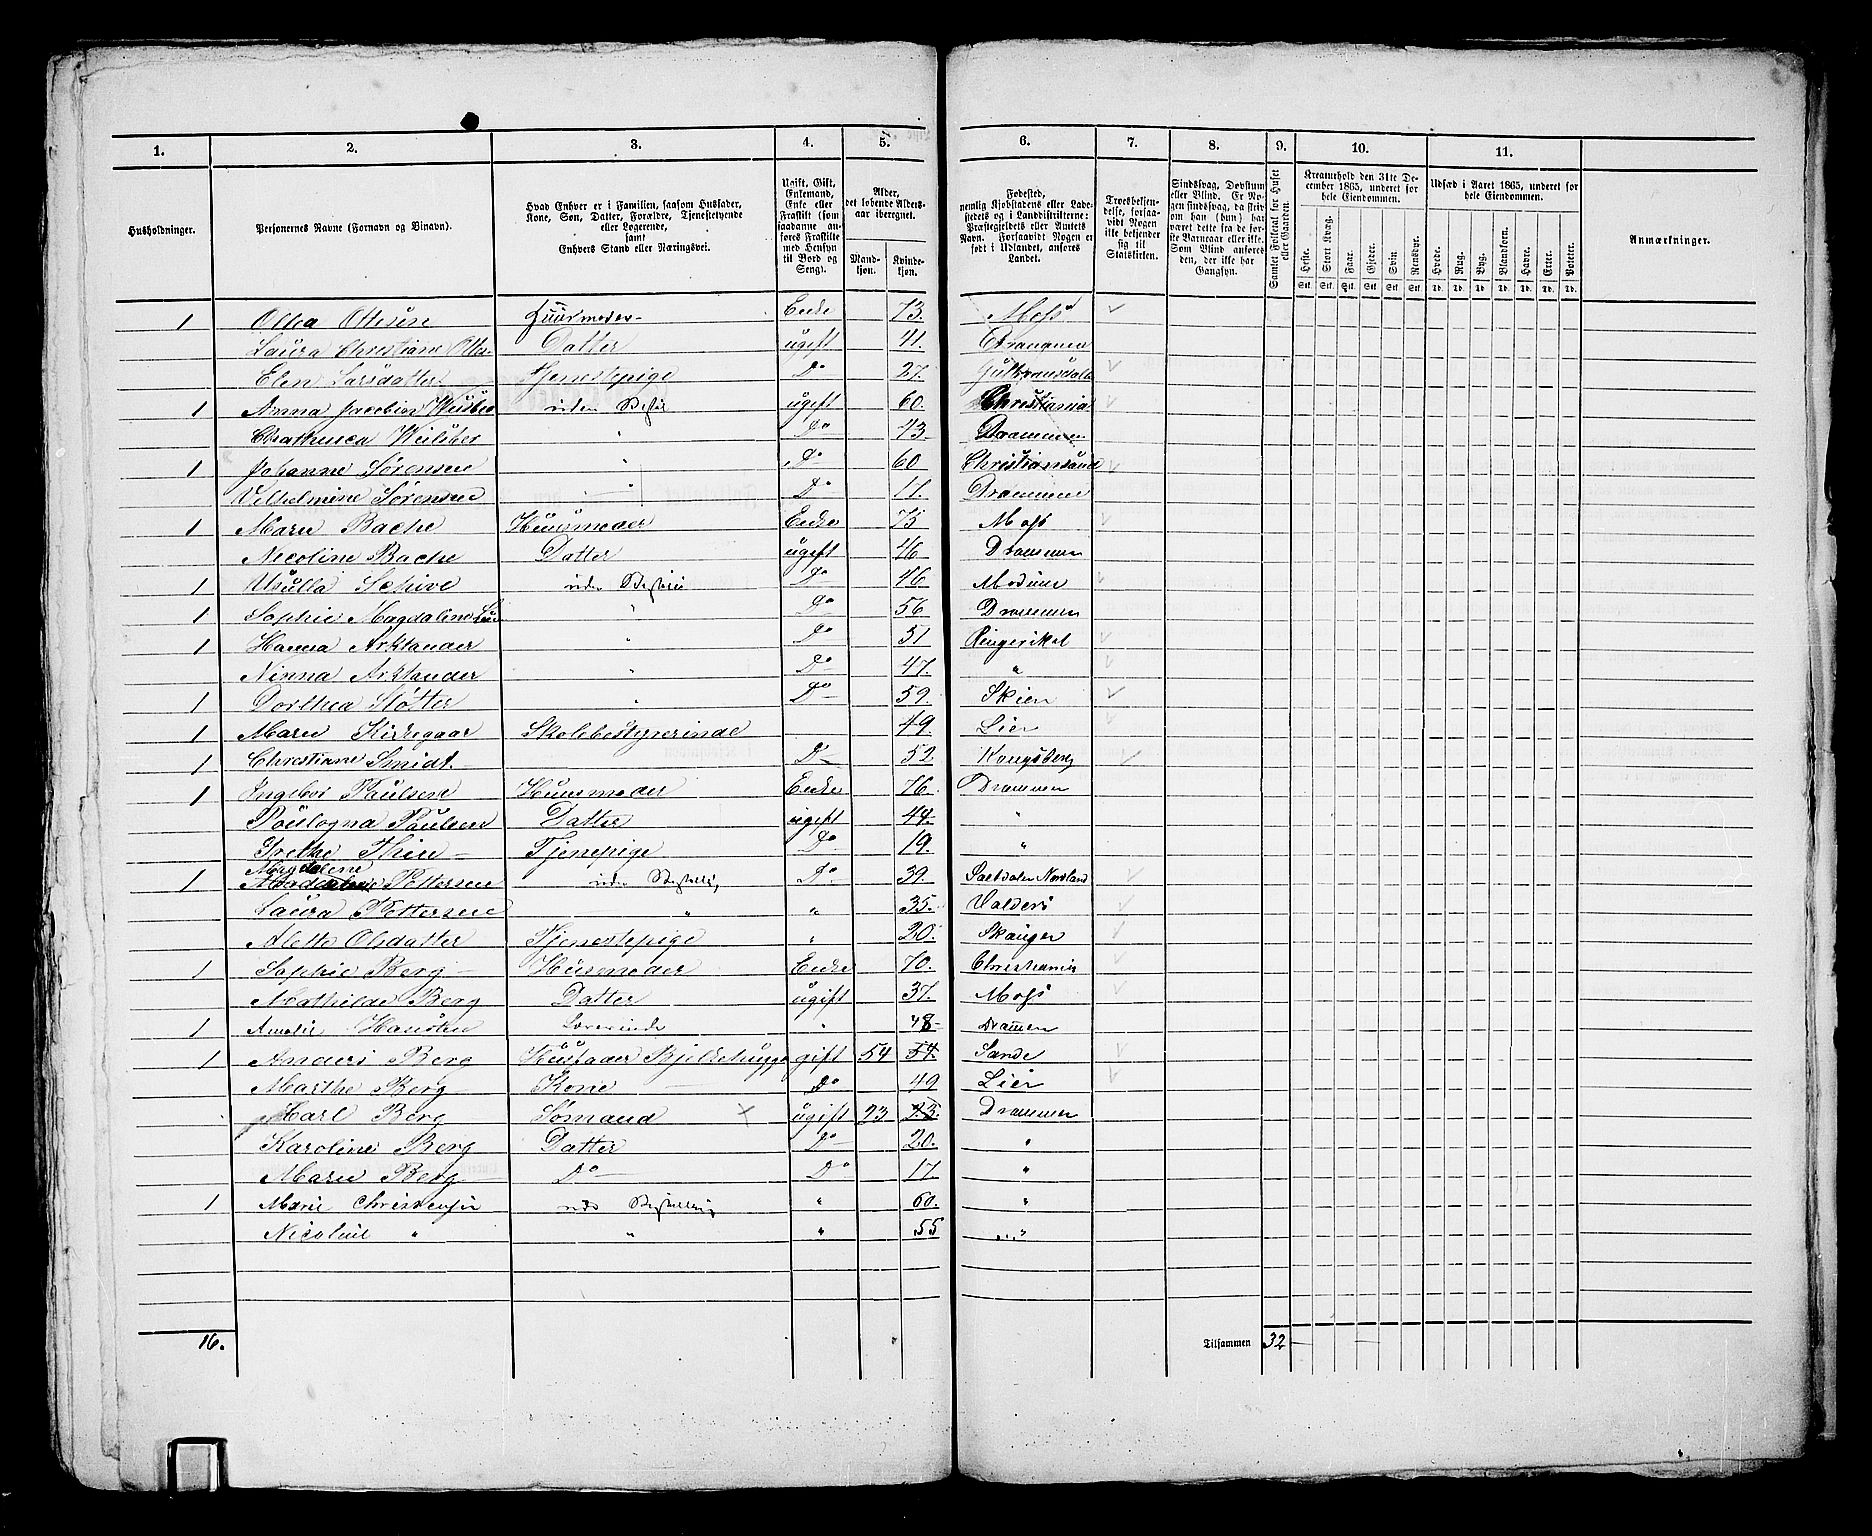 1. 2. 3. 4. 5. 6. 7. 8. 9. 10. 11.
Husholdninger.
Personernes Navne (Fornavn og Tilnavn).
Hvad Enhver er i Familien, saasom Husfader, Kone, Søn, Datter, Forældre, Tjenestetyende eller Logerende, samt Enhvers Stand eller Næringsvei.
Ugift, Gift, Enkemand, Enke eller Fraskilt (som saadanne anføres Fraskilte med Hensyn til Bord og Seng).
Alder, det løbende Alders-aar iberegnet.
Mand-kjøn. Kvinde-kjøn.
Fødested, nemlig Kjøbstadens eller Ladestedets og i Landdistrikterne: Præstegjeldets eller Amtets Navn. Forsaavidt Nogen er født i Udlandet, anføres Landet.
Troesbekjendelse, forsaavidt Nogen ikke bekjender sig til Statskirken.
Sindssvag, Døvstum eller Blind. Er Nogen sindssvag, da skrives om han (hun) har været dette fra de første Barneaar eller ikke. Som Blind anføres den, der ikke har Gangsyn.
Samlet Folketal for Huset eller Gaarden.
Kreaturhold den 31te December 1865, underet for hele Eiendommen.
Heste. Stort Kvæg. Faar. Gjeder. Svin. Rensdyr.
Udsæd i Aaret 1865, underet for hele Eiendommen.
Hvede. Rug. Byg. Blandkorn. Havre. Erter. Poteter.
Stk. Stk. Stk. Stk. Stk. Stk. Td. Td. Td. Td. Td. Td. Td.
Anmærkninger.
1 Ottesen Huusmoder Enke 73. Moss
Laura Christiane Datter ugift 41. Drammen
Elen Larsdatter Tjenestepige Do 27. Gulbransdalen
1 Anna Jacobin uden ugift 60. Christiania
" Do 43 Drammen
1 Johanne Sørensen " Do 60 Christiansand
Vilhelmine Sørensen " Do Drammen
1 Marie Bache Huusmoder Enke 75 Moss
Nicoline Bache Datter ugift 46 Drammen
1 Schive uden Do 46 Modum
1 Sophie Magdaline " Do 56 Drammen
1 Hanna Arktander " Do 51 Ringeriket
Ninna Arktander " Do 47. "
1 Dorthea Støtter " Do 59. Skien
1 Marie Kirkegaar Skolebestyrerinde 49 Lier
1 Christiane Smidt Do 52 Kongsberg
1 Ingebor Paulsen Huusmoder Enke 76. Drammen
Paulsen Datter ugift 44. "
Grethe Tjenepige Do 19. "
Magdalene
1 Pettersen uden Do 39. Saltdalen Nordland
Laura Pettersen " " 35. Valders
Alette Olsdatter Tjenestepige " 20. Skauger
1 Sophie Berg Huusmoder Enke 70. Christiania
Mathilde Berg Datter ugift 37. Moss
1 Amalie Hansten Lærerinde " 48 Drammen
1 Anders Berg Huusfader gift 54 54. Sande
Marthe Berg Kone Do 49 Lier
Karl Berg Sømand ugift 23 23. Drammen
Karoline Berg Datter Do 20. "
Marie Berg Do Do 17. "
1 Marie Christensen " 60. "
" " " 55 "
16. Tilsammen 32